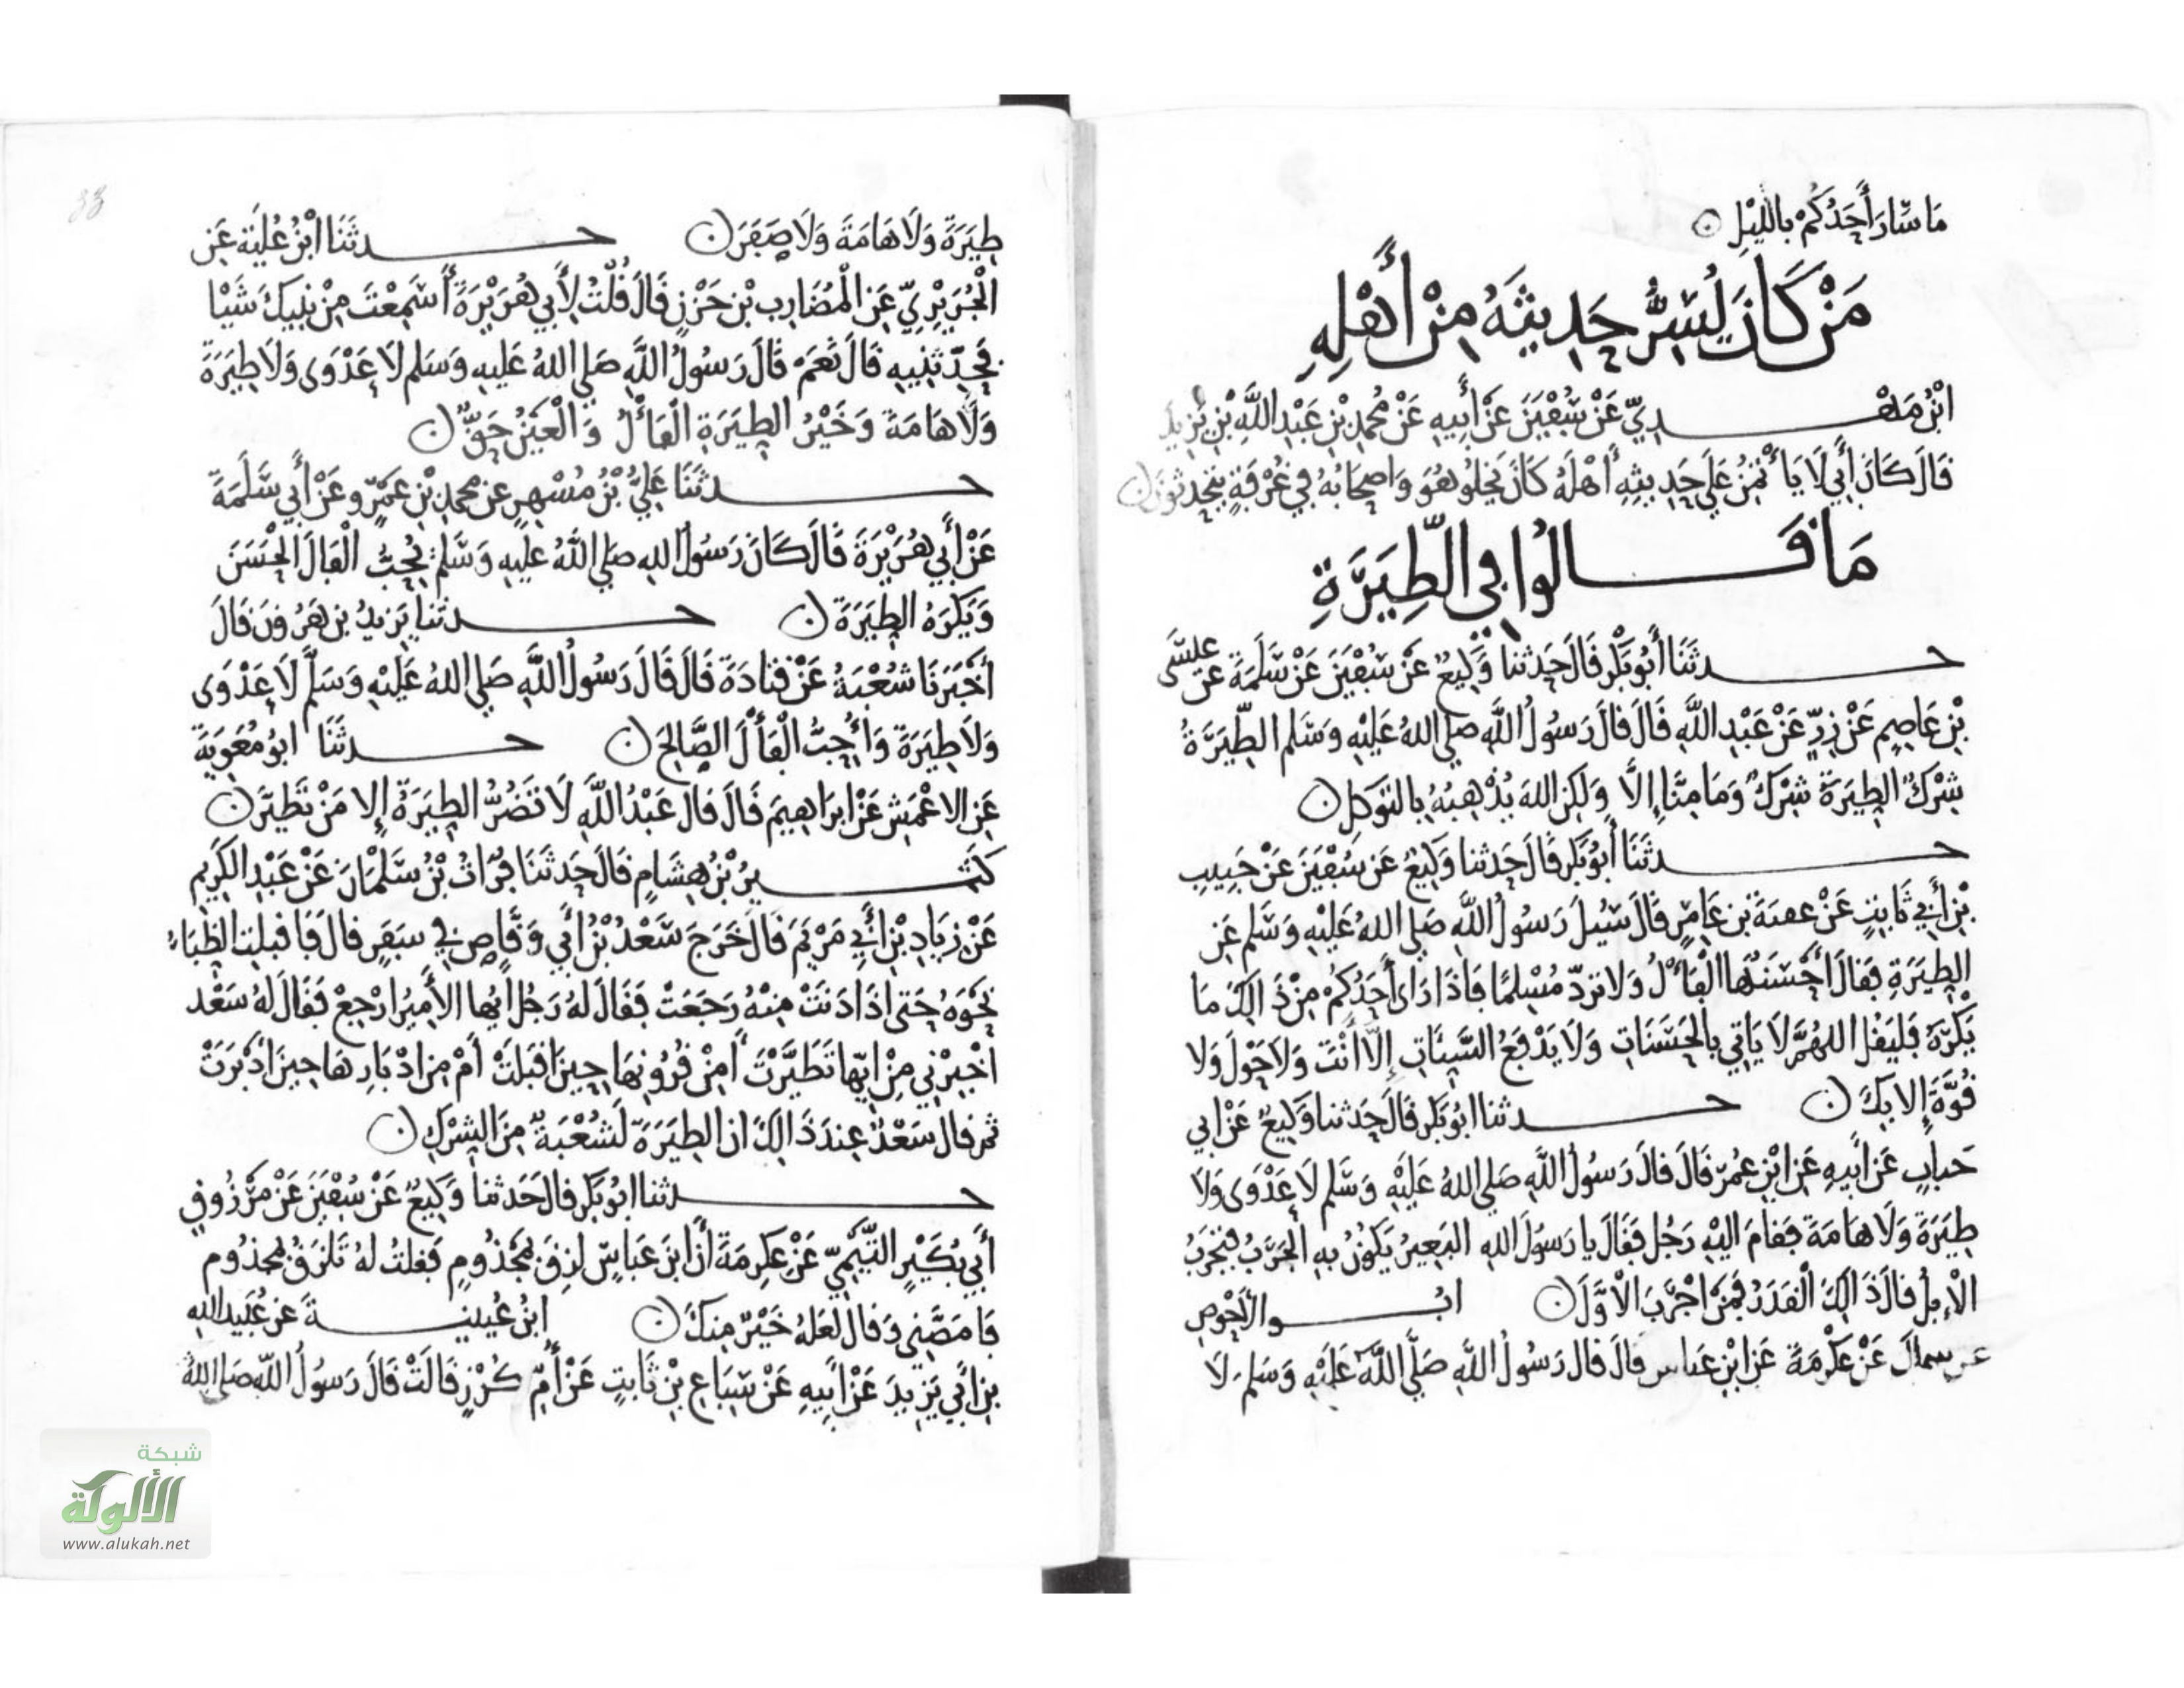 مَا سَارَ أَحَدُكُمْ بِاللَّيْلِ
مَنْ كَانَ يُسِرُّ حَدِيثَهُ مِنْ أَهْلِهِ
ابْنُ مَهْدِيّ عَنْ سُفْيَنَ عَنْ أَبِيهِ عَنْ مُحَمدِ بْنِ عَبْدِ اللَّهِ بْنِ يَزِيدَ
قَالَ كَانَ أَبِي لَا يَأْتَمِنُ عَلَى حَدِيثِهِ أَهْلَهُ كَانَ يَخلُو هُوَ وَاصحَابُهُ فِي غُرْفَةٍ يَتَحَدثونَ
مَا قَالُوا فِي الطِّيَرَةِ
حدثَنَا أَبُو بَكْرٍ قَالَ حَدثنا وَكِيعٌ عَنْ سُفْيَنَ عَنْ سَلَمَةَ عَن عيسَى
بْنِ عَاصِمٍ عَنْ زِرٍّ عَنْ عَبْدِ اللَّهِ قَالَ قَالَ رَسُولُ اللَّهِ صلى اللهُ عَلَيْهِ وَسَلم الطِّيَرَةُ
شِرْكٌ الطِيَرَةُ شِرْكٌ وَمَا مِنَّا إِلَّا وَلَكِن اللهَ يُذْهِبُهُ بِالتوَكل
حدثَنَا أَبُو بَكر قَالَ حَدثنا وَكِيعٌ عَن سُفْيَنَ عَنْ حَبِيبِ
بْنِ أَبِي ثَابِتٍ عَنْ عقبَةَ بن عَامِرٍ قَالَ سُئِلَ رَسُولُ اللَّهِ صَلى اللهُ عَلَيْهِ وَسَلم عَنِ
الطِيَرَةِ فَقَالَ أَحْسَنُهَا الْفَأْلُ وَلَا تردّ مُسْلِمًا فَاذَا رَاى أَحَدُكُمْ مِنْ ذَالِكَ مَا
يَكْرَهُ فَليَقُل اللهُمَّ لَا يَاتي بِالْحَسَنَاتِ وَلَا يَدْفَعُ السَّيِئَاتِ إِلَّا أَنْتَ وَلَا حَوْلَ وَلَا
قُوَّةَ إِلا بِكَ حدثنا ابُو بَكر قَالَ حَدثنا وَكِيعٌ عَنْ ابي
حَبابٍ عَن أَبيهِ عَنِ ابْنِ عُمَرَ قَالَ قالَ رَسُولُ اللَّهِ صَلى اللهُ عَلَيْهِ وَسَلم لَا عَدْوَى وَلَا
طِيَرَةَ وَلَا هَامَةَ فَقَامَ الَيْهِ رَجُل فَقَالَ يا رَسُولَ اللهِ الْبَعِيرُ يَكُونُ بهِ الْجَرَبُ فتجْرَبُ
الْإبلُ قالَ ذَالِكَ الْقَدَرُ فَمَنْ اجْرَبَ الْأَوَّلَ ابُو الأَحْوَصِ
عن سماك عَنْ عِكْرمَةَ عَنِ ابْنِ عَباس قالَ قال رَسُولُ اللَّهِ صَلَّى اللَّهُ عَلَيْهِ وَسَلمَ لَا
33
طِيَرَةَ وَلَا هَامَةَ وَلَا صَفَرَ حدثَنَا ابْنُ عُلَيَّةَ عَنِ
الْجُرَيْرِيِّ عَنِ الْمُضَارِب بْن حَزْنٍ قَالَ قُلْتُ لِأَبِي هُرَيْرَةَ أَسَمِعْتَ مِنْ نبيكَ شَيْا
فَحَدِّثنِيهِ قَالَ نَعَمْ قَالَ رَسُولُ اللَّهِ صَلى اللهُ عَليهِ وَسَلم لَا عَدْوَى وَلَا طِيَرَةَ
وَلَا هَامَةَ وَخَيْرُ الطِيَرَةِ الْفَأْلُ وَالْعَيْنُ حَقٌّ
حدثَنَا عَلِيُّ بْنُ مُسْهِرٍ عن محمدِ بْنِ عَمْرٍو عَنْ أَبِي سَلَمَةَ
عَنْ أَبِي هُرَيْرَةَ قَالَ كَانَ رَسُولُ اللهِ صَلى اللَّهُ عَليهِ وَسَلم يُحِبُّ الْفَالَ الْحَسَنَ
وَيَكْرَهُ الطِيَرَةَ حدثنا يَزِيدُ بن هَرُونَ قَالَ
أَخْبَرَنَا شُعْبَةُ عَنْ قتادَةَ قَالَ قَالَ رَسُولُ اللَّهِ صَلى اللهُ عَلَيْهِ وَسَلَّمَ لَا عَدْوَى
وَلَا طِيَرَةَ وَأُحِبُّ الْفَأْلَ الصَّالِحَ حدثَنَا ابُو مُعَوِيَةَ
عَنِ الاعْمَشِ عَنْ ابرَاهِيمَ قَالَ قَالَ عَبْدُ اللَّهِ لَا تَضُرُّ الطِيَرَةُ إِلا مَنْ تَطَيَّرَ
كَثِيرُ بْنُ هِشَامٍ قَالَ حَدثَنَا فُرَاتُ بْنُ سَلْمَانَ عَنْ عَبْدِ الكَرِيمِ
عَنْ زِيَادِ بْنِ أَبِي مَرْيَمَ قَالَ خَرَجَ سَعْدُ بْنُ أَبِي وَقَّاصٍ فِي سَفَرٍ قالَ فَاقبلت الظِبَاءُ
نَحْوَهُ حَتى اذَا دَنَتْ مِنْهُ رَجَعَتْ فَقَالَ لهُ رَجُلٌ ايُها الأَمِيرُ ارْجِعْ فَقَالَ لهُ سَعْد
اخْبِرْنِي مِنْ ايِّهَا تَطَيَّرْتَ أَمِنْ قُرُونِهَا حِينَ اقبَلَتْ أَمْ مِن ادْبَارِهَا حِينَ ادْبَرَتْ
ثم قال سَعْدٌ عِندَ ذَالِكَ ان الطِيَرَةَ لَشُعْبَةٌ مِنَ الشِرْكِ
حدثنا ابُو بَكر قال حَدثنا وَكِيعٌ عَنْ سُفْيَنَ عَنْ مَرْزُوقٍ
أَبِي بُكَيْرٍ التَّيْمِيِّ عَنْ عِكرِمَةَ أَنَّ ابنَ عَبَاسٍ لزِقَ بمَجْذُومٍ فَقلتُ لهُ تَلزَقُ بمجذُومٍ
فَامَضَّنِي وَقال لَعَلهُ خَيْرٌ مِنكَ ابْنُ عُيَيْنَةَ عَن عُبَيد اللهِ
بن أَبِي يَزِيدَ عَنْ أَبِيهِ عَنْ سِبَاعِ بْنِ ثَابِتٍ عَنْ أُمِّ كُرْزٍ قَالَتْ قَالَ رَسُولُ اللَّهِ صَلى اللهُ
شبكة
الألوكة
www.alukah.net